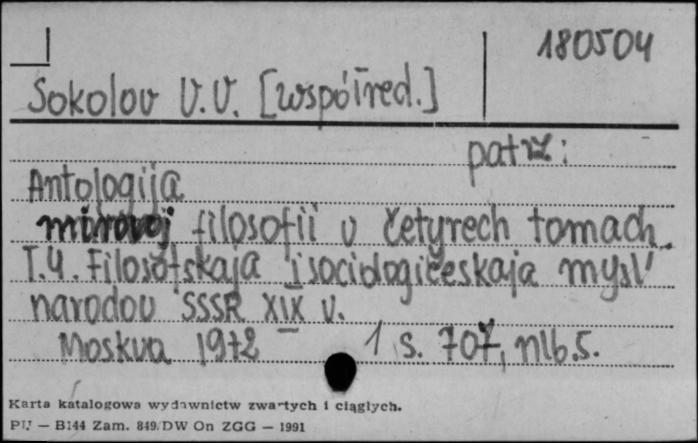 180504
Sokolov V.V. [współred.]
patrz:
Antologija
mirovoj filosofii v četyrech tomach.
T.4. Filosofskaja i sociologičeskaja mysl'
narodov SSSR XIX v.
Moskva 1972 1, s. 707, nlb.5.
Karta katalogowa wydawnictw zwartych i ciągłych.
PU — B144 Zam. 849/DW On ZGG — 1991